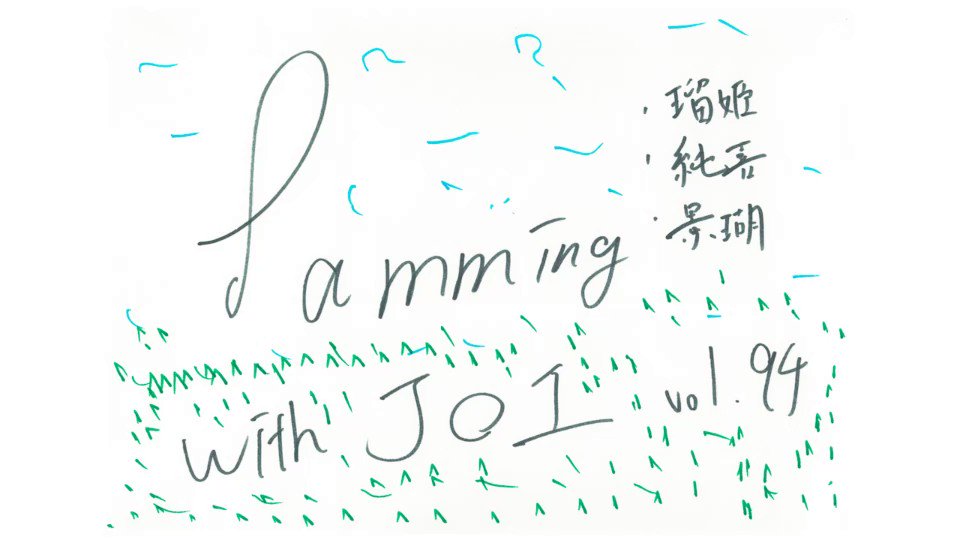 Jamming
・瑠姫
・純喜
・景瑚
with JO1 vol.94